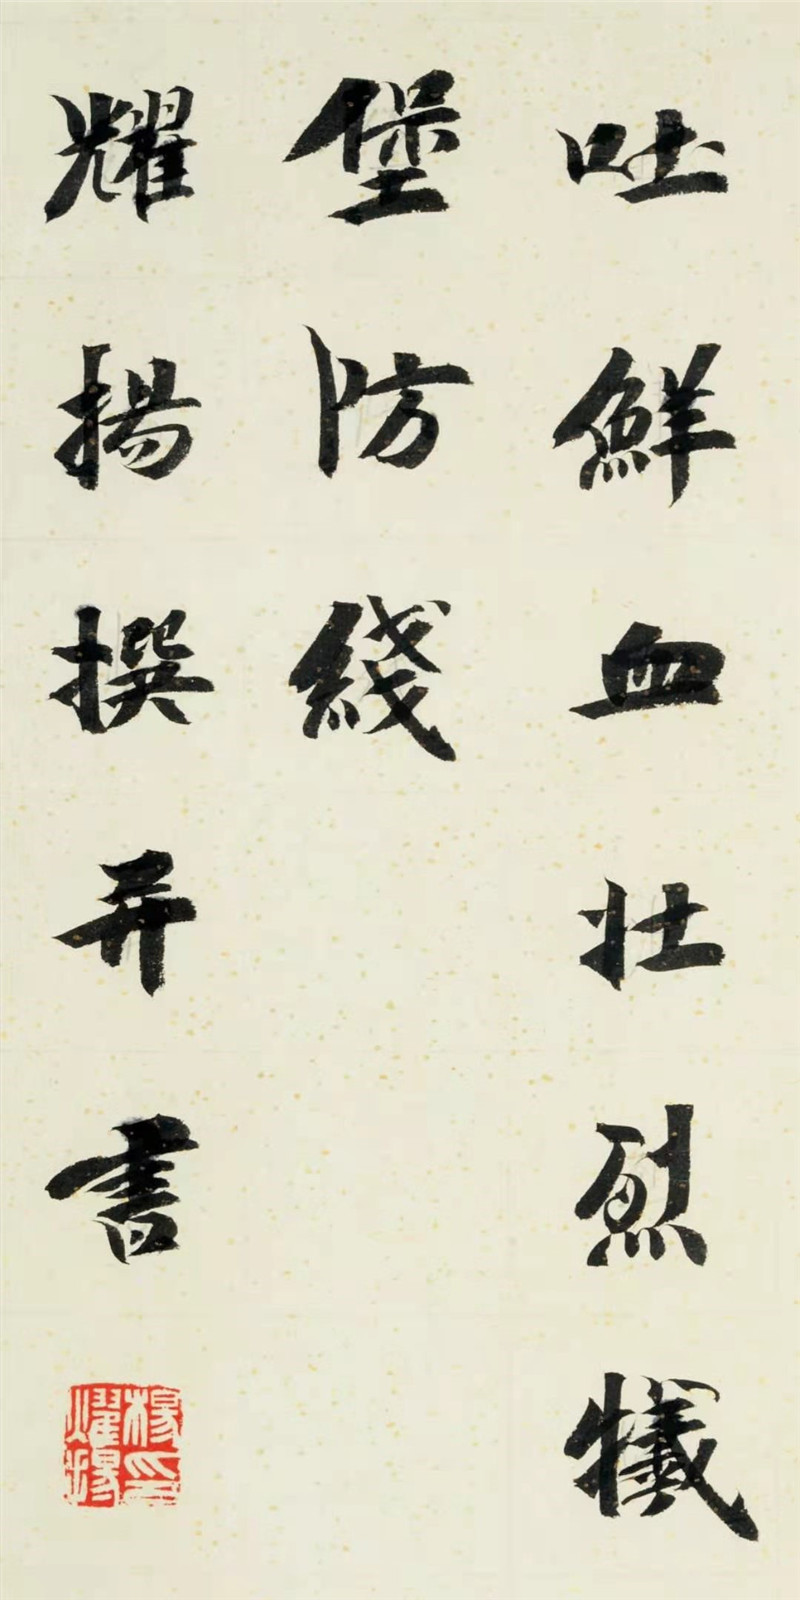 吐鮮血壮烈犠
堡防綫
耀揚撰并書
楊耀揚印